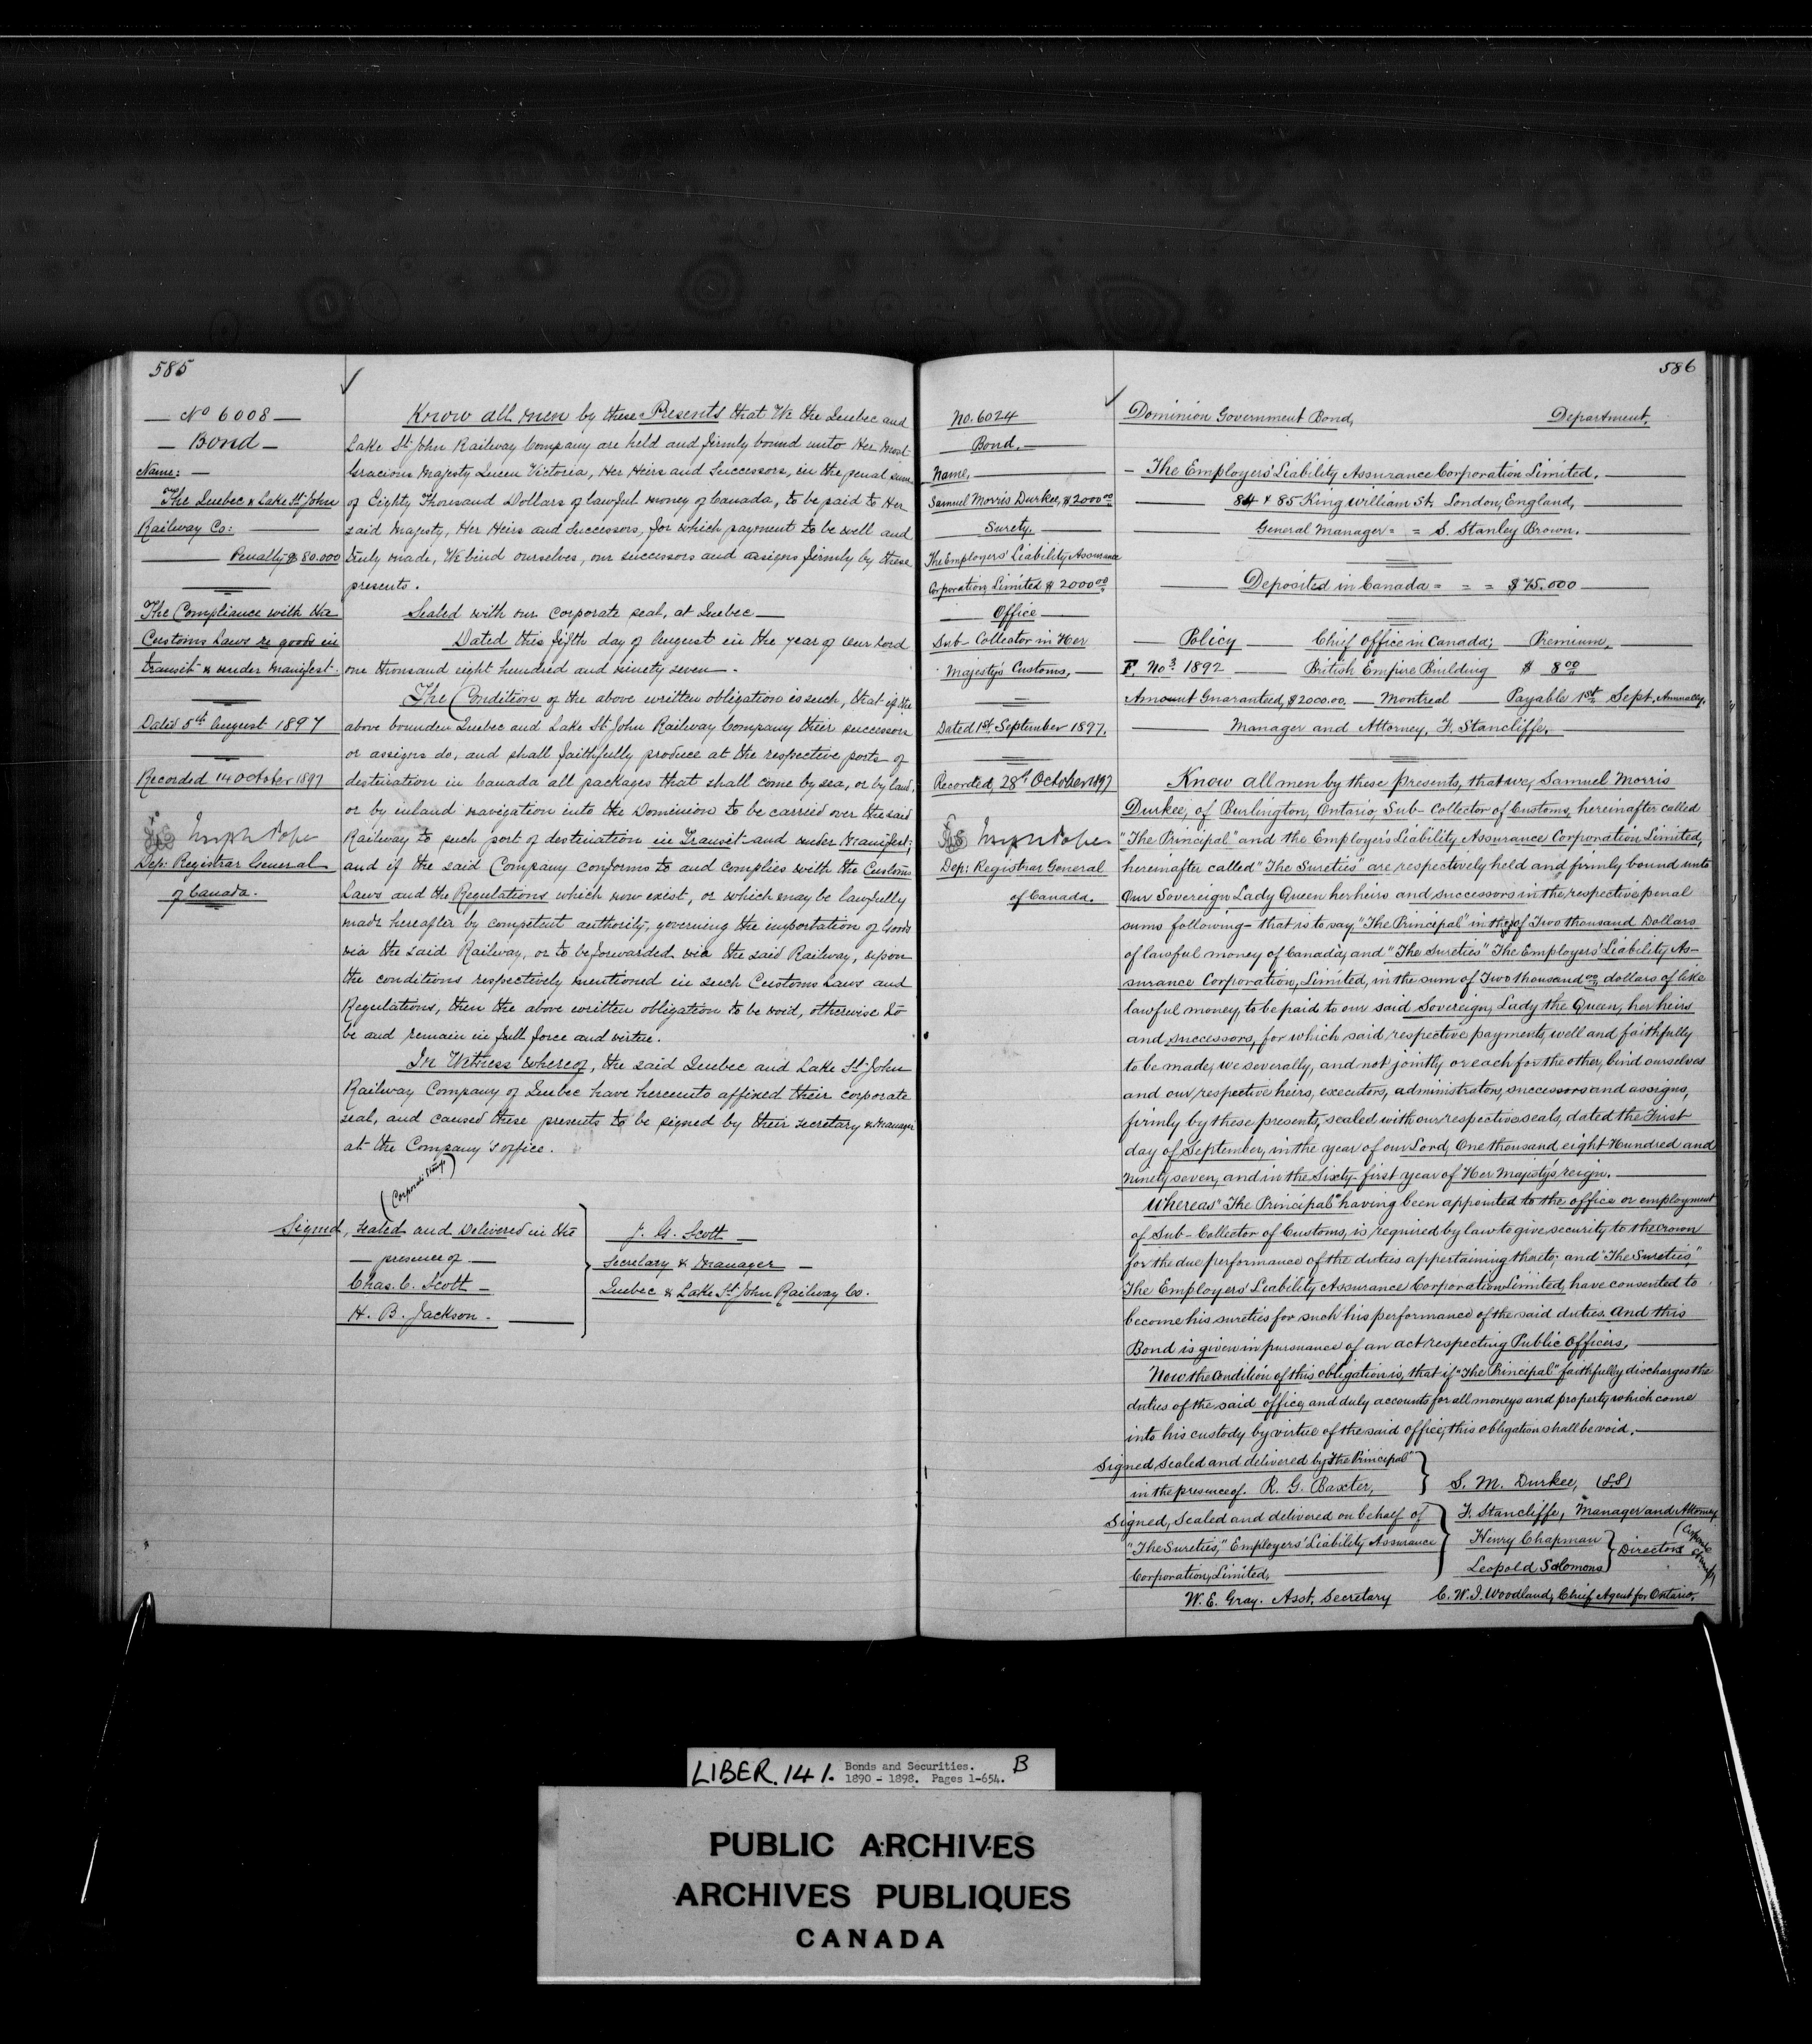 585
No 6008
Bond
Name:
The Quebec & Lake St John
Railway Co:
Penalty $ 80.000
The Compliance with the
Customs Laws re goods in
transit & under manifest.
Dated 5th August 1897
Recorded 14 October 1897
Joseph Pope
Dep: Registrar General
of Canada.
Know all men by these Presents that We the Quebec and
Lake St John Railway Company are held and firmly bound unto Her Most
Gracious Majesty Queen Victoria, Her Heirs and Successors, in the penal sum
of Eighty Thousand Dollars of lawful money of Canada, to be paid to Her
said Majesty, Her Heirs and Successors, for which payment to be well and
truly made, We bind ourselves, our successors and assigns firmly by these
presents.
Sealed with our corporate seal, at Quebec
Dated this fifth day of August in the year of Our Lord
one thousand eight hundred and ninety seven.
The Condition of the above written obligation is such, that if the
above bounden Quebec and Lake St John Railway Company their successors
or assigns do, and shall faithfully produce at the respective ports of
destination in Canada all packages that shall come by sea, or by land,
or by inland navigation into the Dominion to be carried over the said
Railway to such port of destination in Transit and under Manifest;
and if the said Company conforms to and complies with the Customs
Laws and the Regulations which now exist, or which may be lawfully
made hereafter by competent authority, governing the importation of Goods
via the said Railway, or to be forwarded via the said Railway, upon
the conditions respectively mentioned in such Customs Laws and
Regulations, then the above written obligation to be void, otherwise to
be and remain in full force and virtue.
In Witness whereof, the said Quebec and Lake St John
Railway Company of Quebec have hereunto affixed their corporate
seal, and caused these presents to be signed by their secretary & Manager
at the Company's office.
(Corporate Stamp)
Signed, sealed and Delivered in the
presence of
Chas. C. Scott
H. B. Jackson.
J. G. Scott
Secretary & Manager
Quebec & Lake St John Railway Co.
586
No. 6024
Bond.
Name,
Samuel Morris Durkee, $2000 00
Surety.
The Employers' Liability Assurance
Corporation, Limited $ 2000 00
Office
Sub-Collector in Her
Majesty's Customs,
Dated 1st September 1897.
Recorded, 28th October 1897
Joseph Pope
Dep: Registrar General
of Canada.
Dominion Government Bond, Department.
The Employers' Liability Assurance Corporation Limited.
84 & 85 King William St. London, England,
General Manager = = S. Stanley Brown.
Deposited in Canada = = = $75.000
Policy Chief office in Canada; Premium,
F. No 3 1892 British Empire Building $ 8 00
Amount Guaranteed, $2000.00. Montreal Payable 1st Sept. Annually.
Manager and Attorney, F. Stancliffe.
Know all men by these Presents, that we, Samuel Morris
Durkee, of Burlington, Ontario, Sub-Collector of Customs, hereinafter called
"The Principal" and the Employer's Liability Assurance Corporation Limited,
hereinafter called "The Sureties" are respectively held and firmly bound unto
Our Sovereign Lady Queen her heirs and successors in the respective penal
sums following - that is to say, "The Principal" in the of Two thousand Dollars
of lawful money of Canada, and "The Sureties" The Employers' Liability As-
surance Corporation, Limited, in the sum of Two thousand 00 dollars of like
lawful money, to be paid to our said Sovereign, Lady the Queen, her heirs
and successors, for which said respective payments, well and faithfully
to be made, we severally, and not jointly or each for the other, bind ourselves
and our respective heirs, executors, administrators, successors and assigns,
firmly by these presents, sealed with our respective seals, dated the First
day of September, in the year of our Lord, One thousand eight Hundred and
ninety seven, and in the Sixty-first year of Her Majesty's reign.
Whereas "The Principal" having been appointed to the office or employment
of Sub-Collector of Customs, is required by law to give security to the crown
for the due performance of the duties appertaining thereto; and "The Sureties,"
The Employers' Liability Assurance Corporation Limited, have consented to
become his sureties for such his performance of the said duties. And this
Bond is given in pursuance of an act respecting Public Officers,
Now the Condition of this obligation is, that if "The Principal" faithfully discharges the
duties of the said office, and duly accounts for all moneys and property which come
into his custody by virtue of the said office, this obligation shall be void.
Signed, Sealed and delivered by "The Principal"
in the presence of. R. G. Baxter,
S. M. Durkee, (LS)
Signed, Sealed and delivered on behalf of
"The Sureties," Employers' Liability Assurance
Corporation, Limited,
F. Stancliffe, Manager and Attorney
Henry Chapman
Leopold Salomons
Directors
(Corporate Stamp)
W. E. Gray. Asst. Secretary C. W. I. Woodland, Chief Agent for Ontario.
LIBER. 141. Bonds and Securities. B
1890 - 1898. Pages 1-654.
PUBLIC ARCHIVES
ARCHIVES PUBLIQUES
CANADA